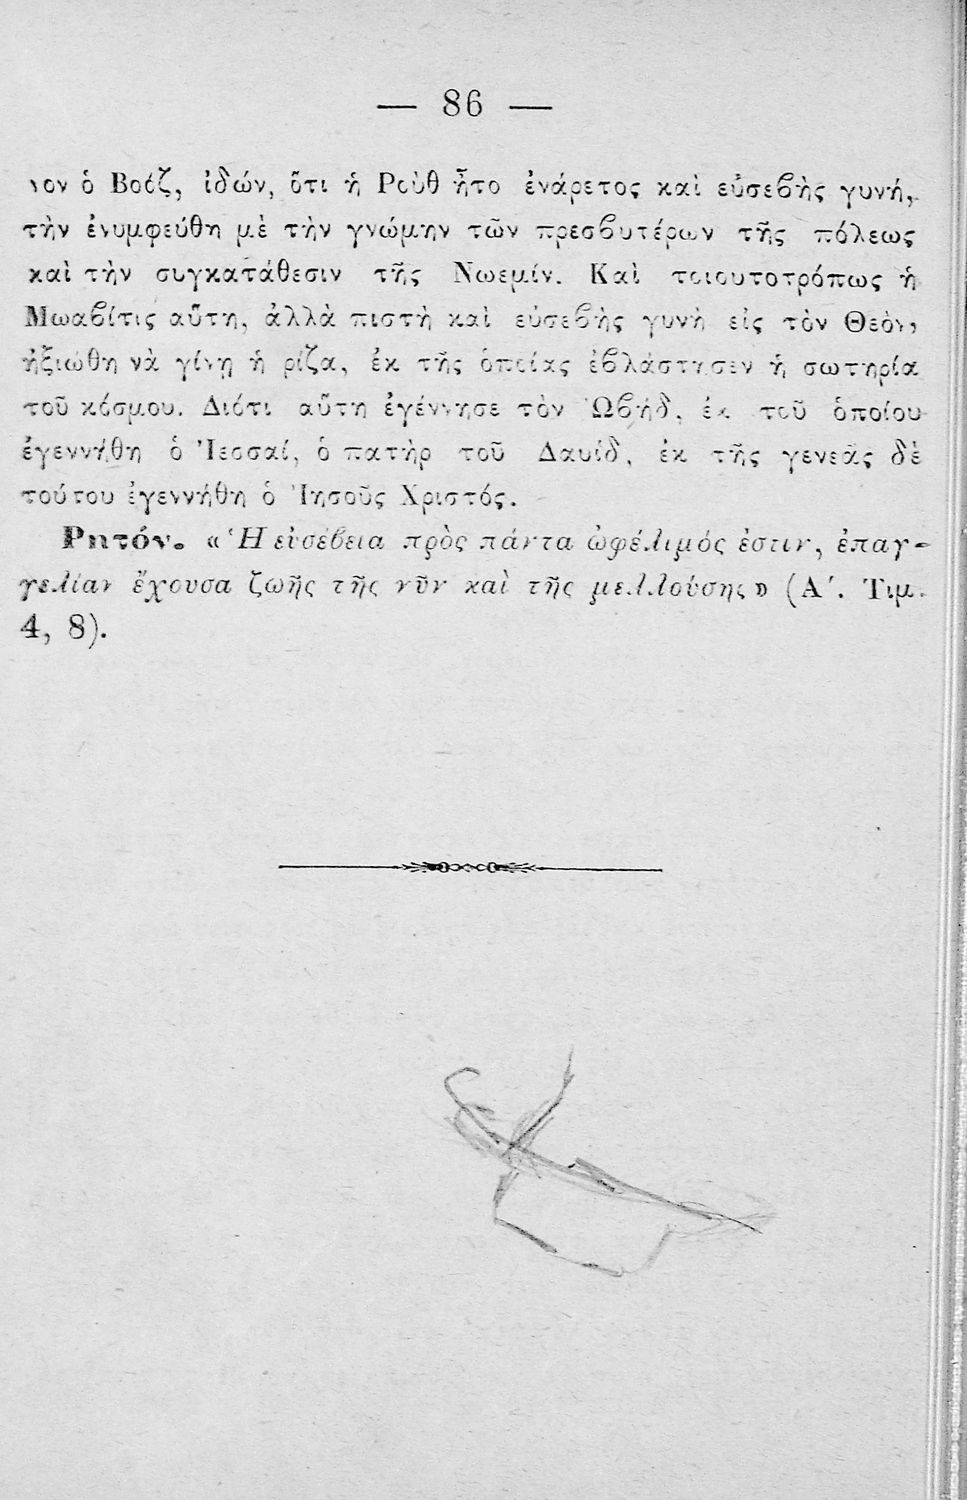 — 86 —
νον ὁ Βοόζ, ἰδών, ὅτι ἡ Ρούθ ἦτο ἐνάρετος καὶ εὐσεβὴς γυνή,
τὴν ἐνυμφεύθη μὲ τὴν γνώμην τῶν πρεσβυτέρων τῆς πόλεως
καὶ τὴν συγκατάθεσιν τῆς Νωεμίν. Καὶ τοιουτοτρόπως ἡ
Μωαβίτις αὕτη, ἀλλὰ πιστὴ καὶ εὐσεβὴς γυνὴ εἰς τὸν Θεὸν,
ἠξιώθη νὰ γίνῃ ἡ ρίζα, ἐκ τῆς ὁποίας ἐβλάστησεν ἡ σωτηρία
τοῦ κόσμου. Διότι αὕτη ἐγέννησε τὸν Ὠβήδ, ἐκ τοῦ ὁποίου
ἐγεννήθη ὁ Ἰεσσαί, ὁ πατὴρ τοῦ Δαυίδ, ἐκ τῆς γενεᾶς δὲ
τούτου ἐγεννήθη ὁ Ἰησοῦς Χριστός.
Ρητόν. «Ἡ εὐσέβεια πρὸς πάντα ὠφέλιμός ἐστιν, ἐπαγ-
γελίαν ἔχουσα ζωῆς τῆς νῦν καὶ τῆς μελλούσης» (Α΄. Τιμ.
4, 8).